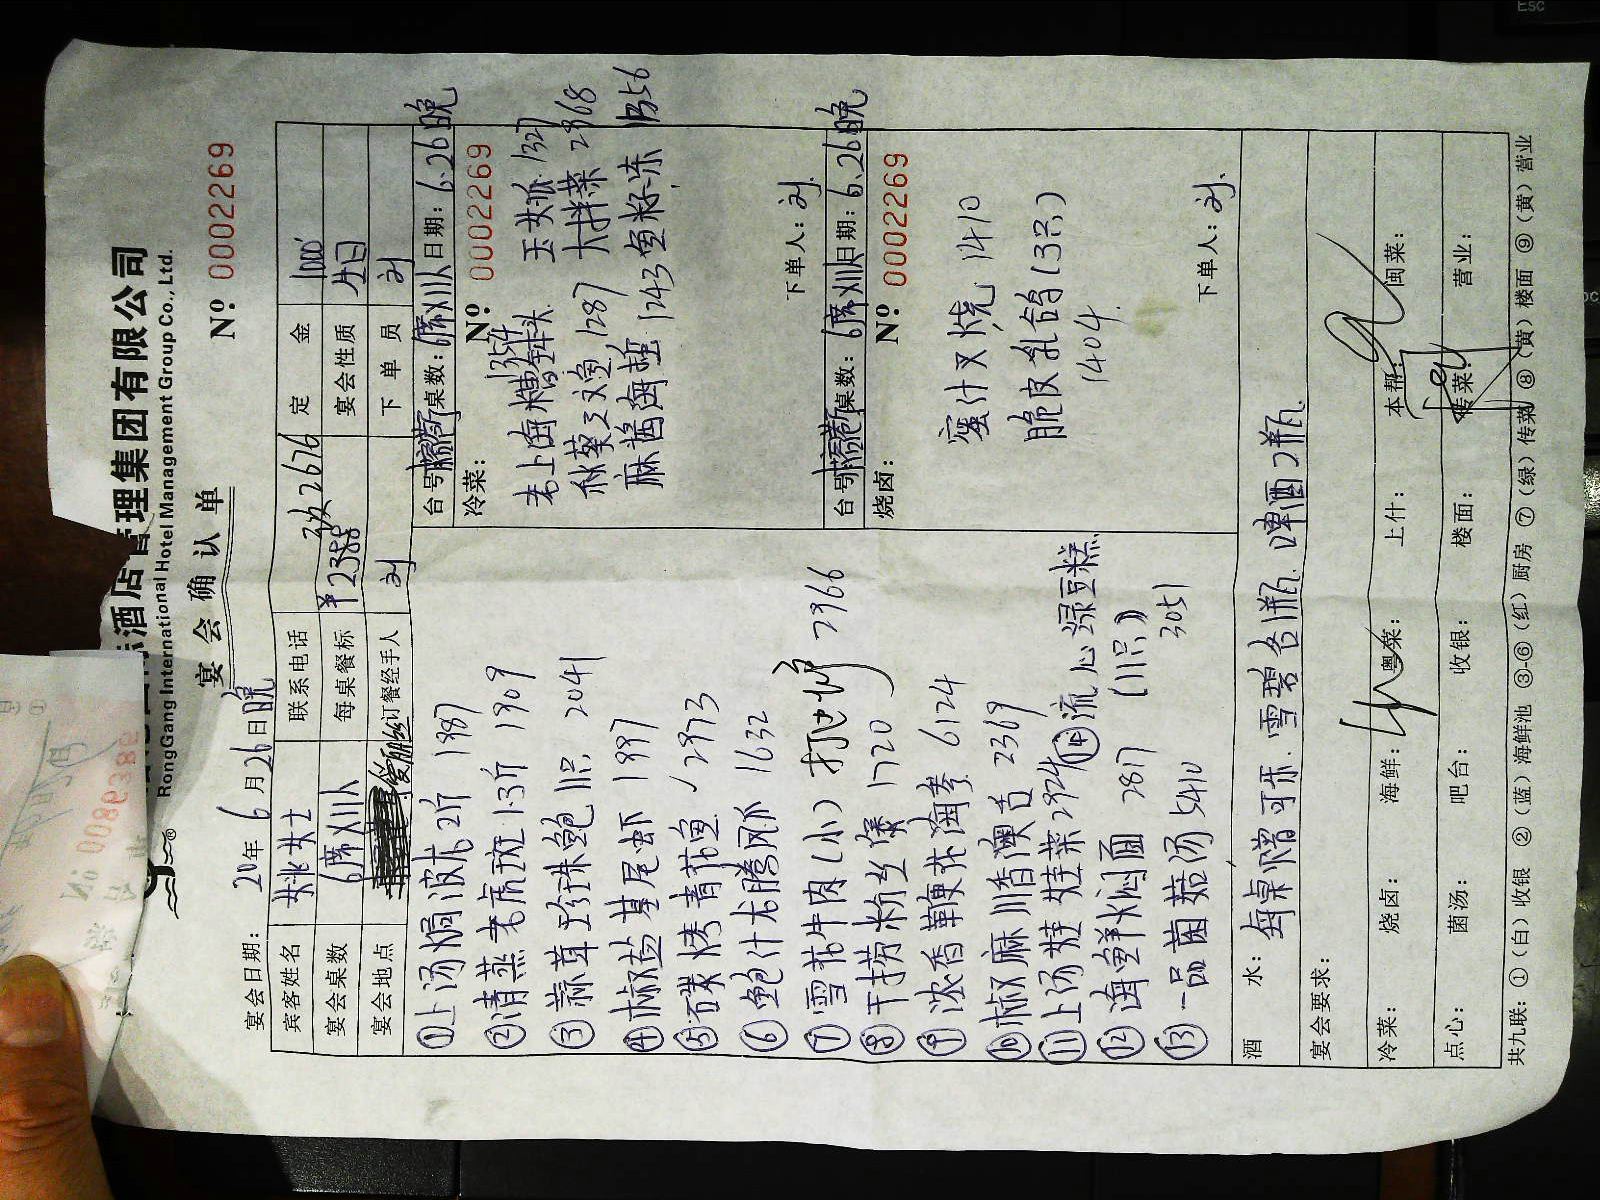 酒店管理集团有限公司
RongGang International Hotel Management Group Co., Ltd.
宴会确认单
Nº 0002269
宴会日期: 20年6月26日晚
宾客姓名 姚女士 联系电话 2676 定金 1000
宴会桌数 6席 每桌餐标 ¥2388 宴会性质 生日
宴会地点 订餐经手人 刘 下单员 刘
①上汤焗波龙2斤 1987
②清蒸老虎斑1.3斤 1909
③蒜茸珍珠鲍11只 2041
④椒盐基尾虾 1997
⑤碳烤青花鱼 2973
⑥鲍汁尤腾凤爪 1632
⑦雪花牛肉(小)
⑧干捞粉丝煲 1720
⑨浓香鞭花海参 6124
⑩椒麻川香澳舌 2369
⑪上汤娃娃菜2924
⑫海鲜焖面 2817
⑬一品菌菇汤 5410
7366
⑭流心绿豆糕
(11只)
3051
台号 桌数: 6席 日期: 6.26晚
冷菜: Nº 0002269
老上海糟钵头 1354 玉女瓜 1327
秋葵文鱼 1287 大拌菜 2368
麻酱海蜇 1243 鱼籽冻 1356
下单人: 刘
台号 桌数: 6席 日期: 6.26晚
烧卤: Nº 0002269
蜜汁叉烧 1410
脆皮乳鸽(3只)
1404
下单人: 刘
酒水: 每桌赠可乐.雪碧各1瓶.啤酒2瓶
宴会要求:
冷菜: 烧卤: 海鲜: 粤菜: 上什: 本帮: 闽菜:
点心: 菌汤: 吧台: 收银: 楼面: 传菜: 营业:
共九联: ①(白)收银 ②(蓝)海鲜池 ③-⑥(红)厨房 ⑦(绿)传菜 ⑧(黄)楼面 ⑨(黄)营业
Esc